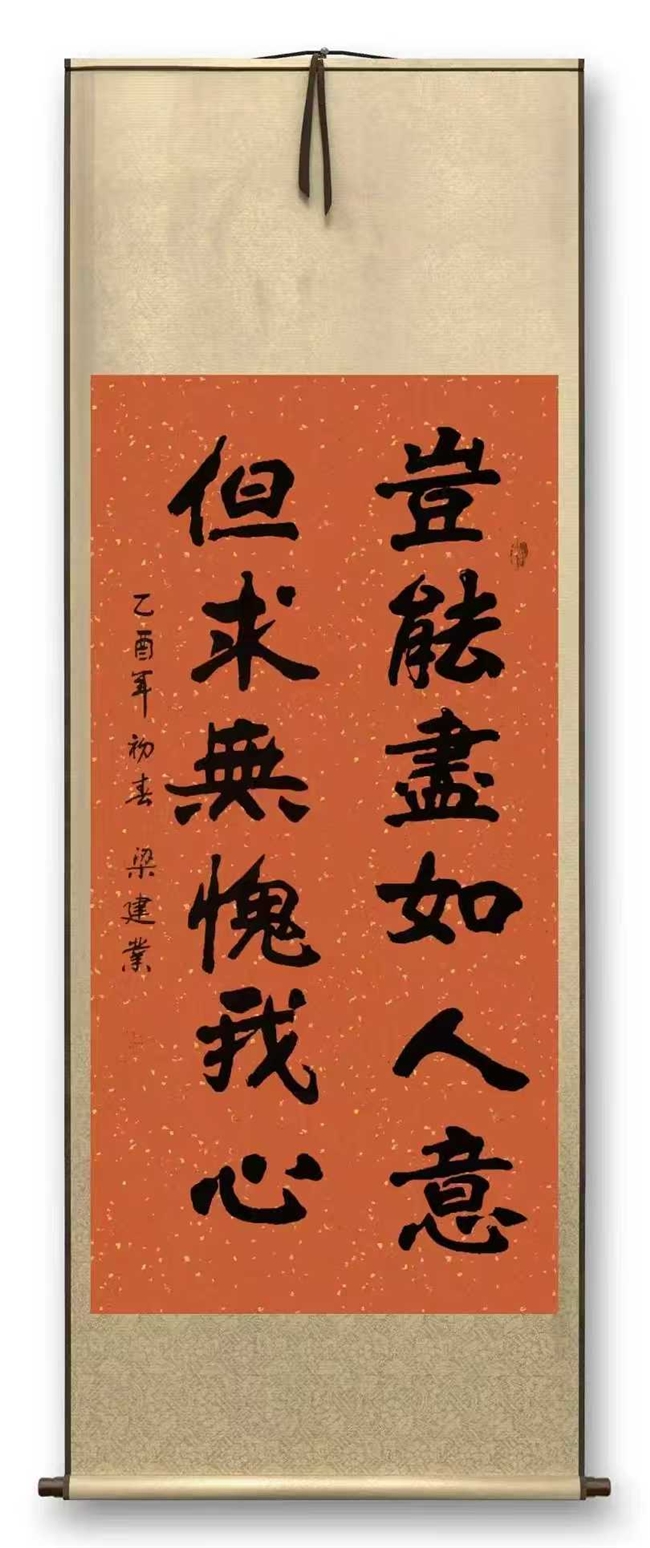 豈能盡如人意
但求無愧我心
乙酉年初春 梁建業